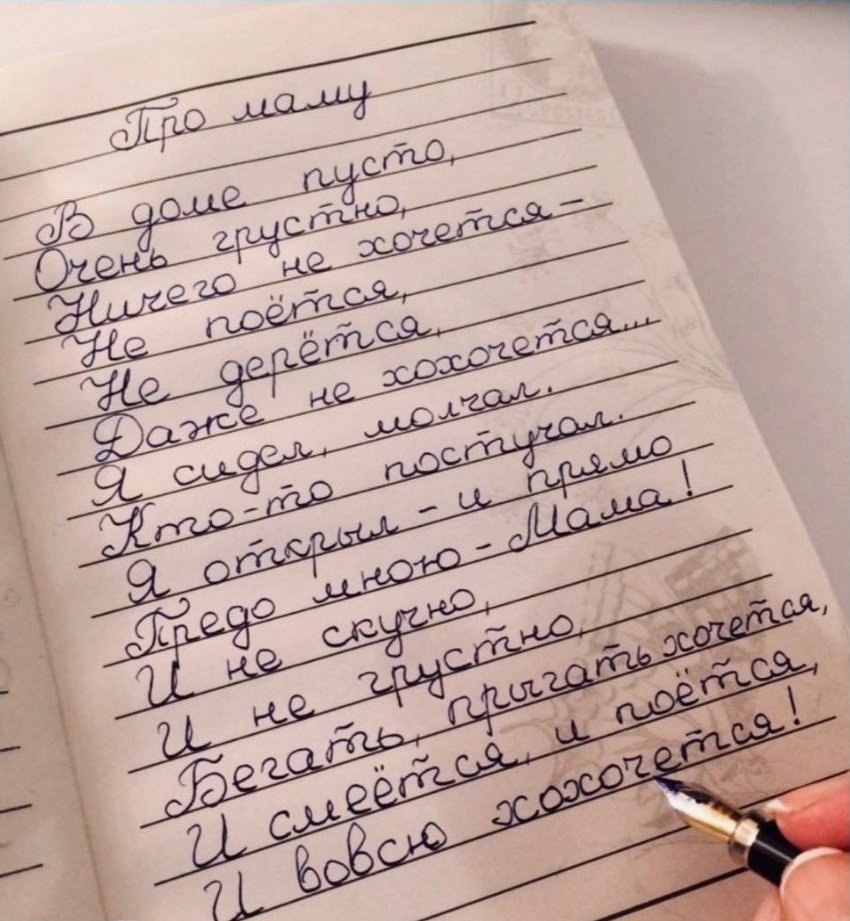 Про маму
В доме пусто,
Очень грустно,
Ничего не хочется -
Не поётся,
Не дерётся,
Даже не хохочется...
Я сидел, молчал.
Кто-то постучал.
Я открыл - и прямо
Предо мною - Мама!
И не скучно,
И не грустно,
Бегать, прыгать хочется,
И смеётся, и поётся,
И вовсю хохочется!